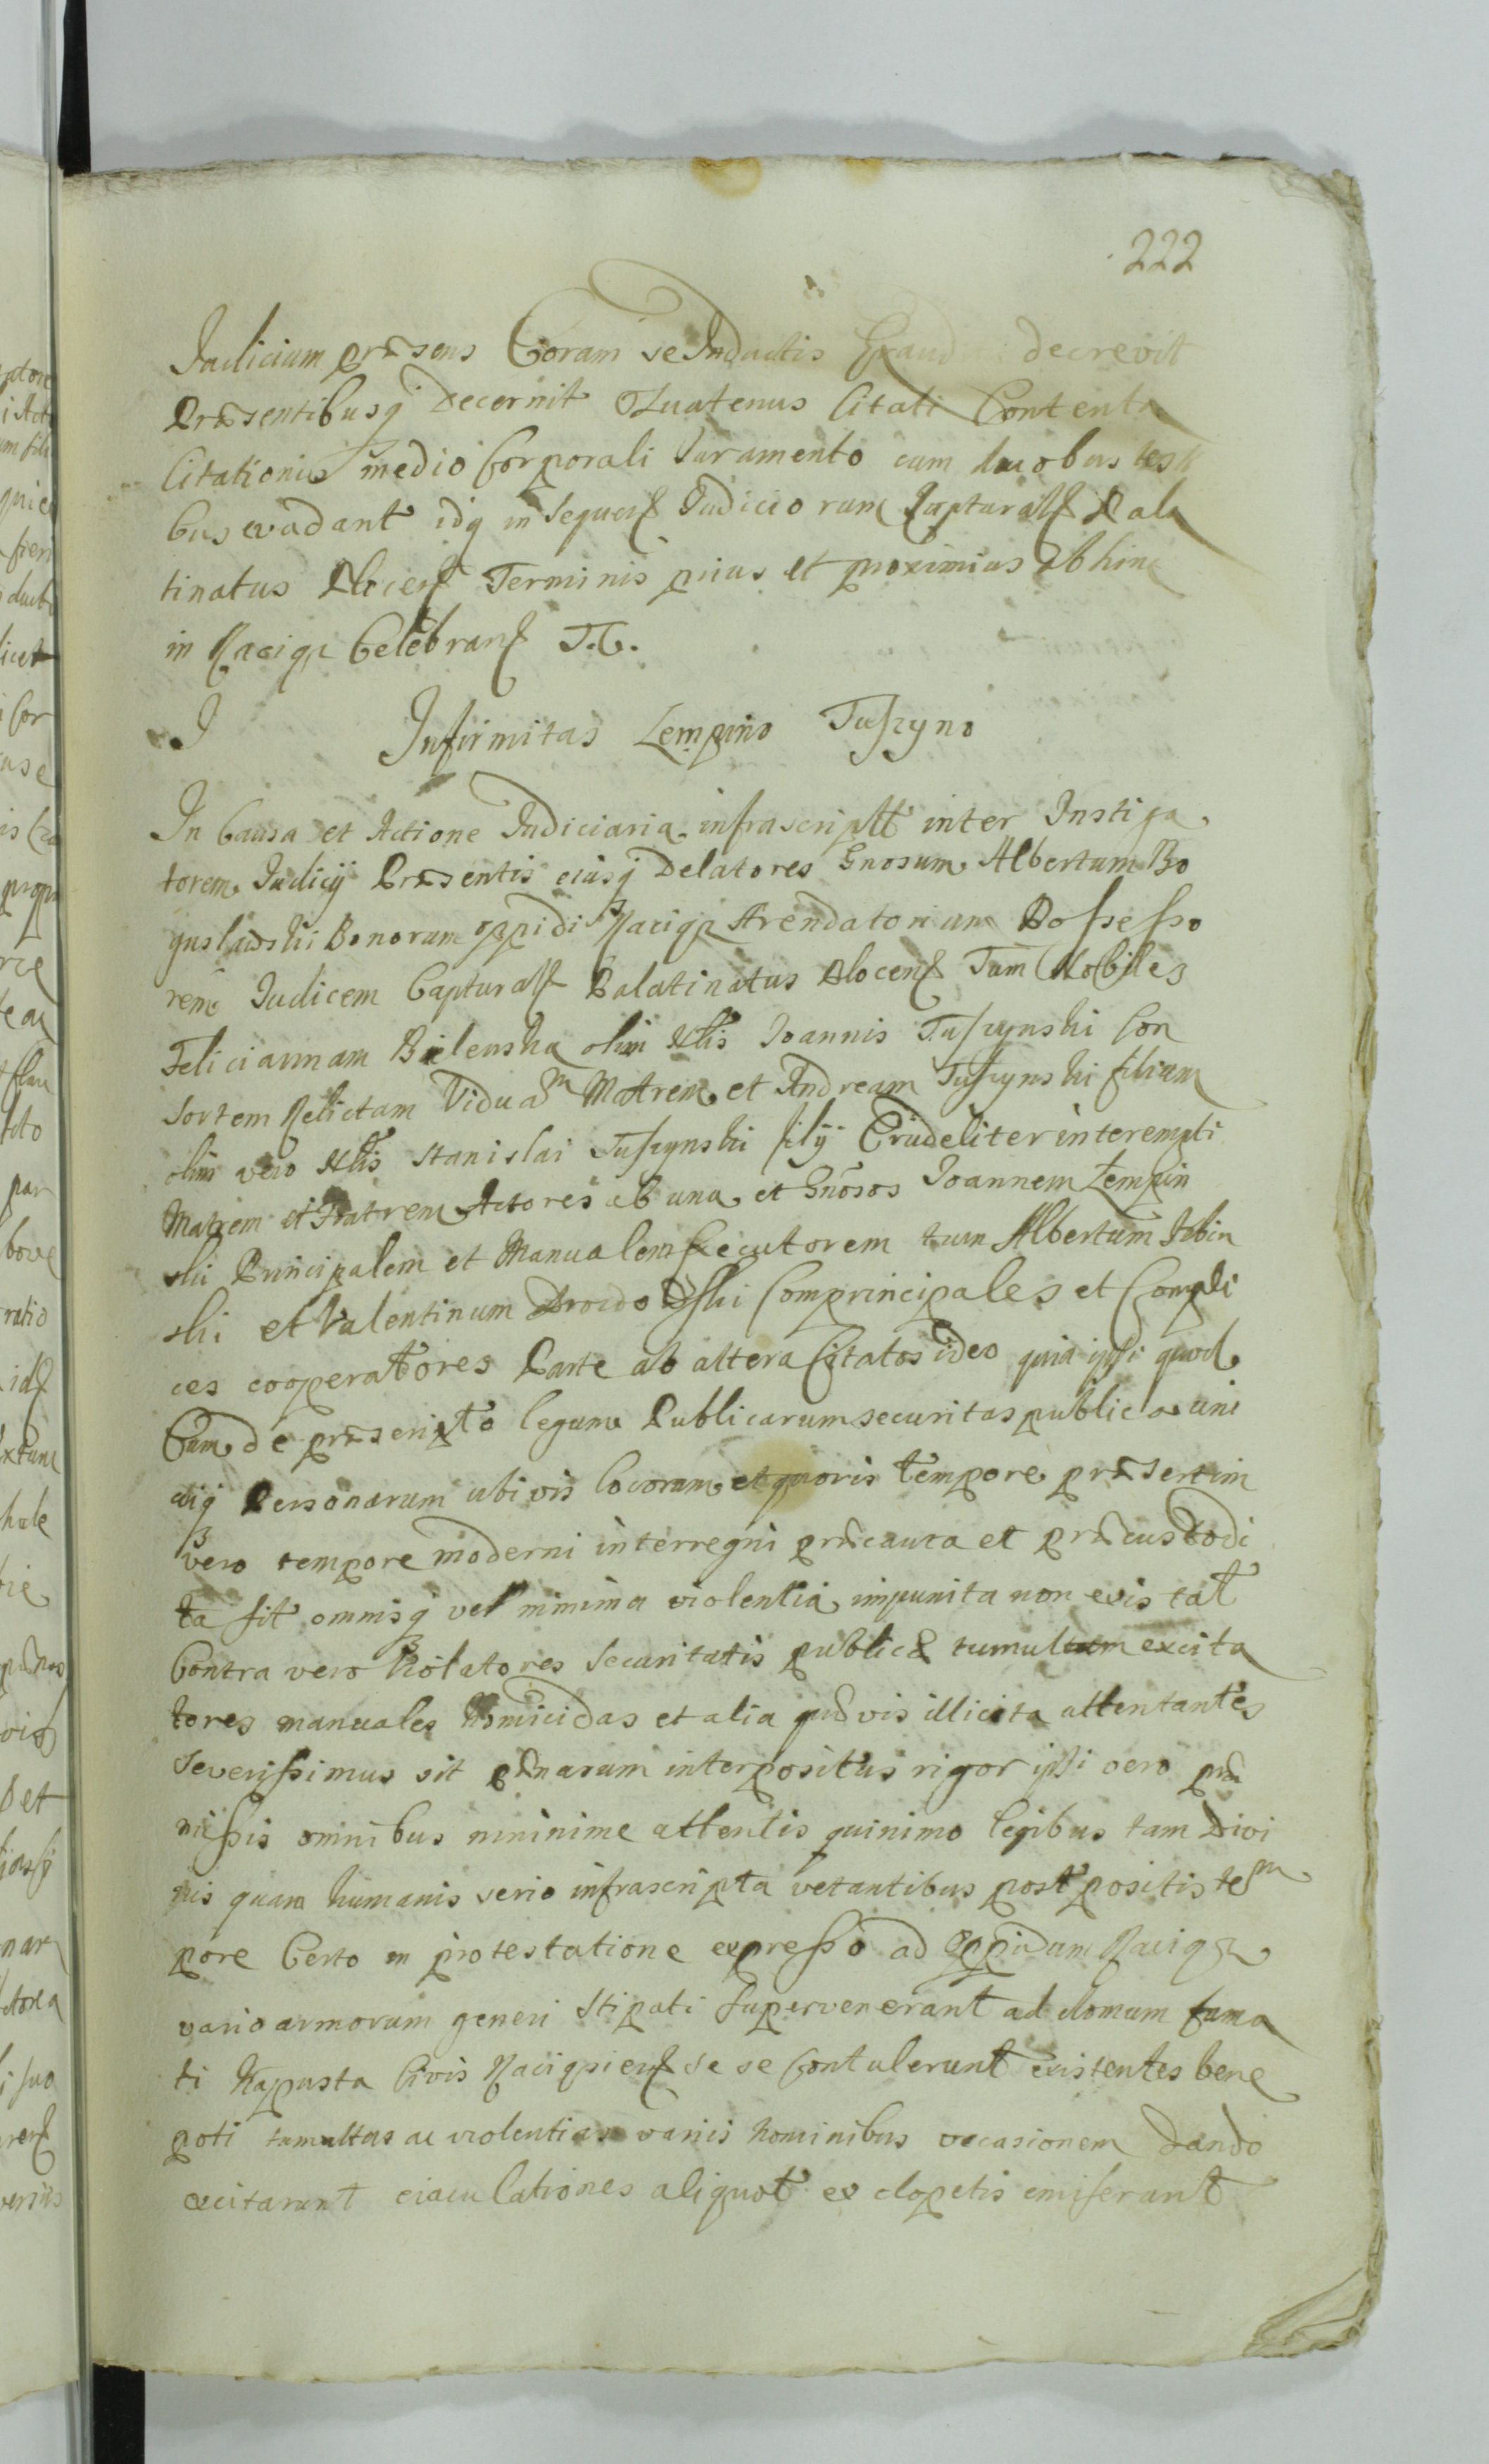 222
Judicium præsens Coram se Inductis decrevit
Præsentibusq decernit Quatenus Citati Contenta
Citationis medio Corporali Juramento cum duobus testi
bus evadant idq in sequens Judiciorum Capturals Pala
tinatus Plocens Terminis prius et proximius abhinc
in Raciąż Celebrans T. T.
J Infirmitas Lempino Tuszyno
In Causa et Actione Judiciaria infrascriptt inter Instiga
torem Judicij Præsentis eiusq Delatores Gnosum Albertum Bo
gusławski Bonorum oppidi Raciąż Arendatorium Possesso
rem Judicem Capturals Palatinatus Plocens Tum Nobiles
Feliciannam Bielenska olim Nlis Joannis Tuszynski Con
sortem Relictam Viduam Matrem et Andream Tuszynski filium
olim vero Nlis Stanislai Tuszynski filij Crudeliter interempti
Matrem et Fratrem Actores ab una et Gnosos Joannem Lempin
ski Principalem et Manualem Executorem tum Albertum
ski et Valentinum Comprincipales et Compli
ces cooperatores Parte ab altera Citatos ideo quia ipsi quod
Cum de præscripto legum Publicarum securitas publica uni
cuiq Personarum ubivis locorum et quovis tempore præsertim
vero tempore moderni interregni præcauta et præcustodi
ta sit omnisq vel minima violentia impunita non existat
Contra vero violatores securitatis publicæ tumultum excita
tores manuales homicidas et alia quævis illicita attentantes
severissimus sit pænarum interpositus rigor ipsi vero præ
missis omnibus minime attentis quinimo legibus tam Divi
nis quam humanis serio infrascripta vetantibus postpositis tem
pore Certo in protestatione expresso ad oppidum Raciąż
vario armorum generi stipati supervenerant ad domum fama
ti Kapusta Civis Raciąziens se se Contulerunt existentes bene
poti tumultus ac violentias variis hominibus occasionem dando
excitarunt eiaculationes aliquot ex clopetis emiserant